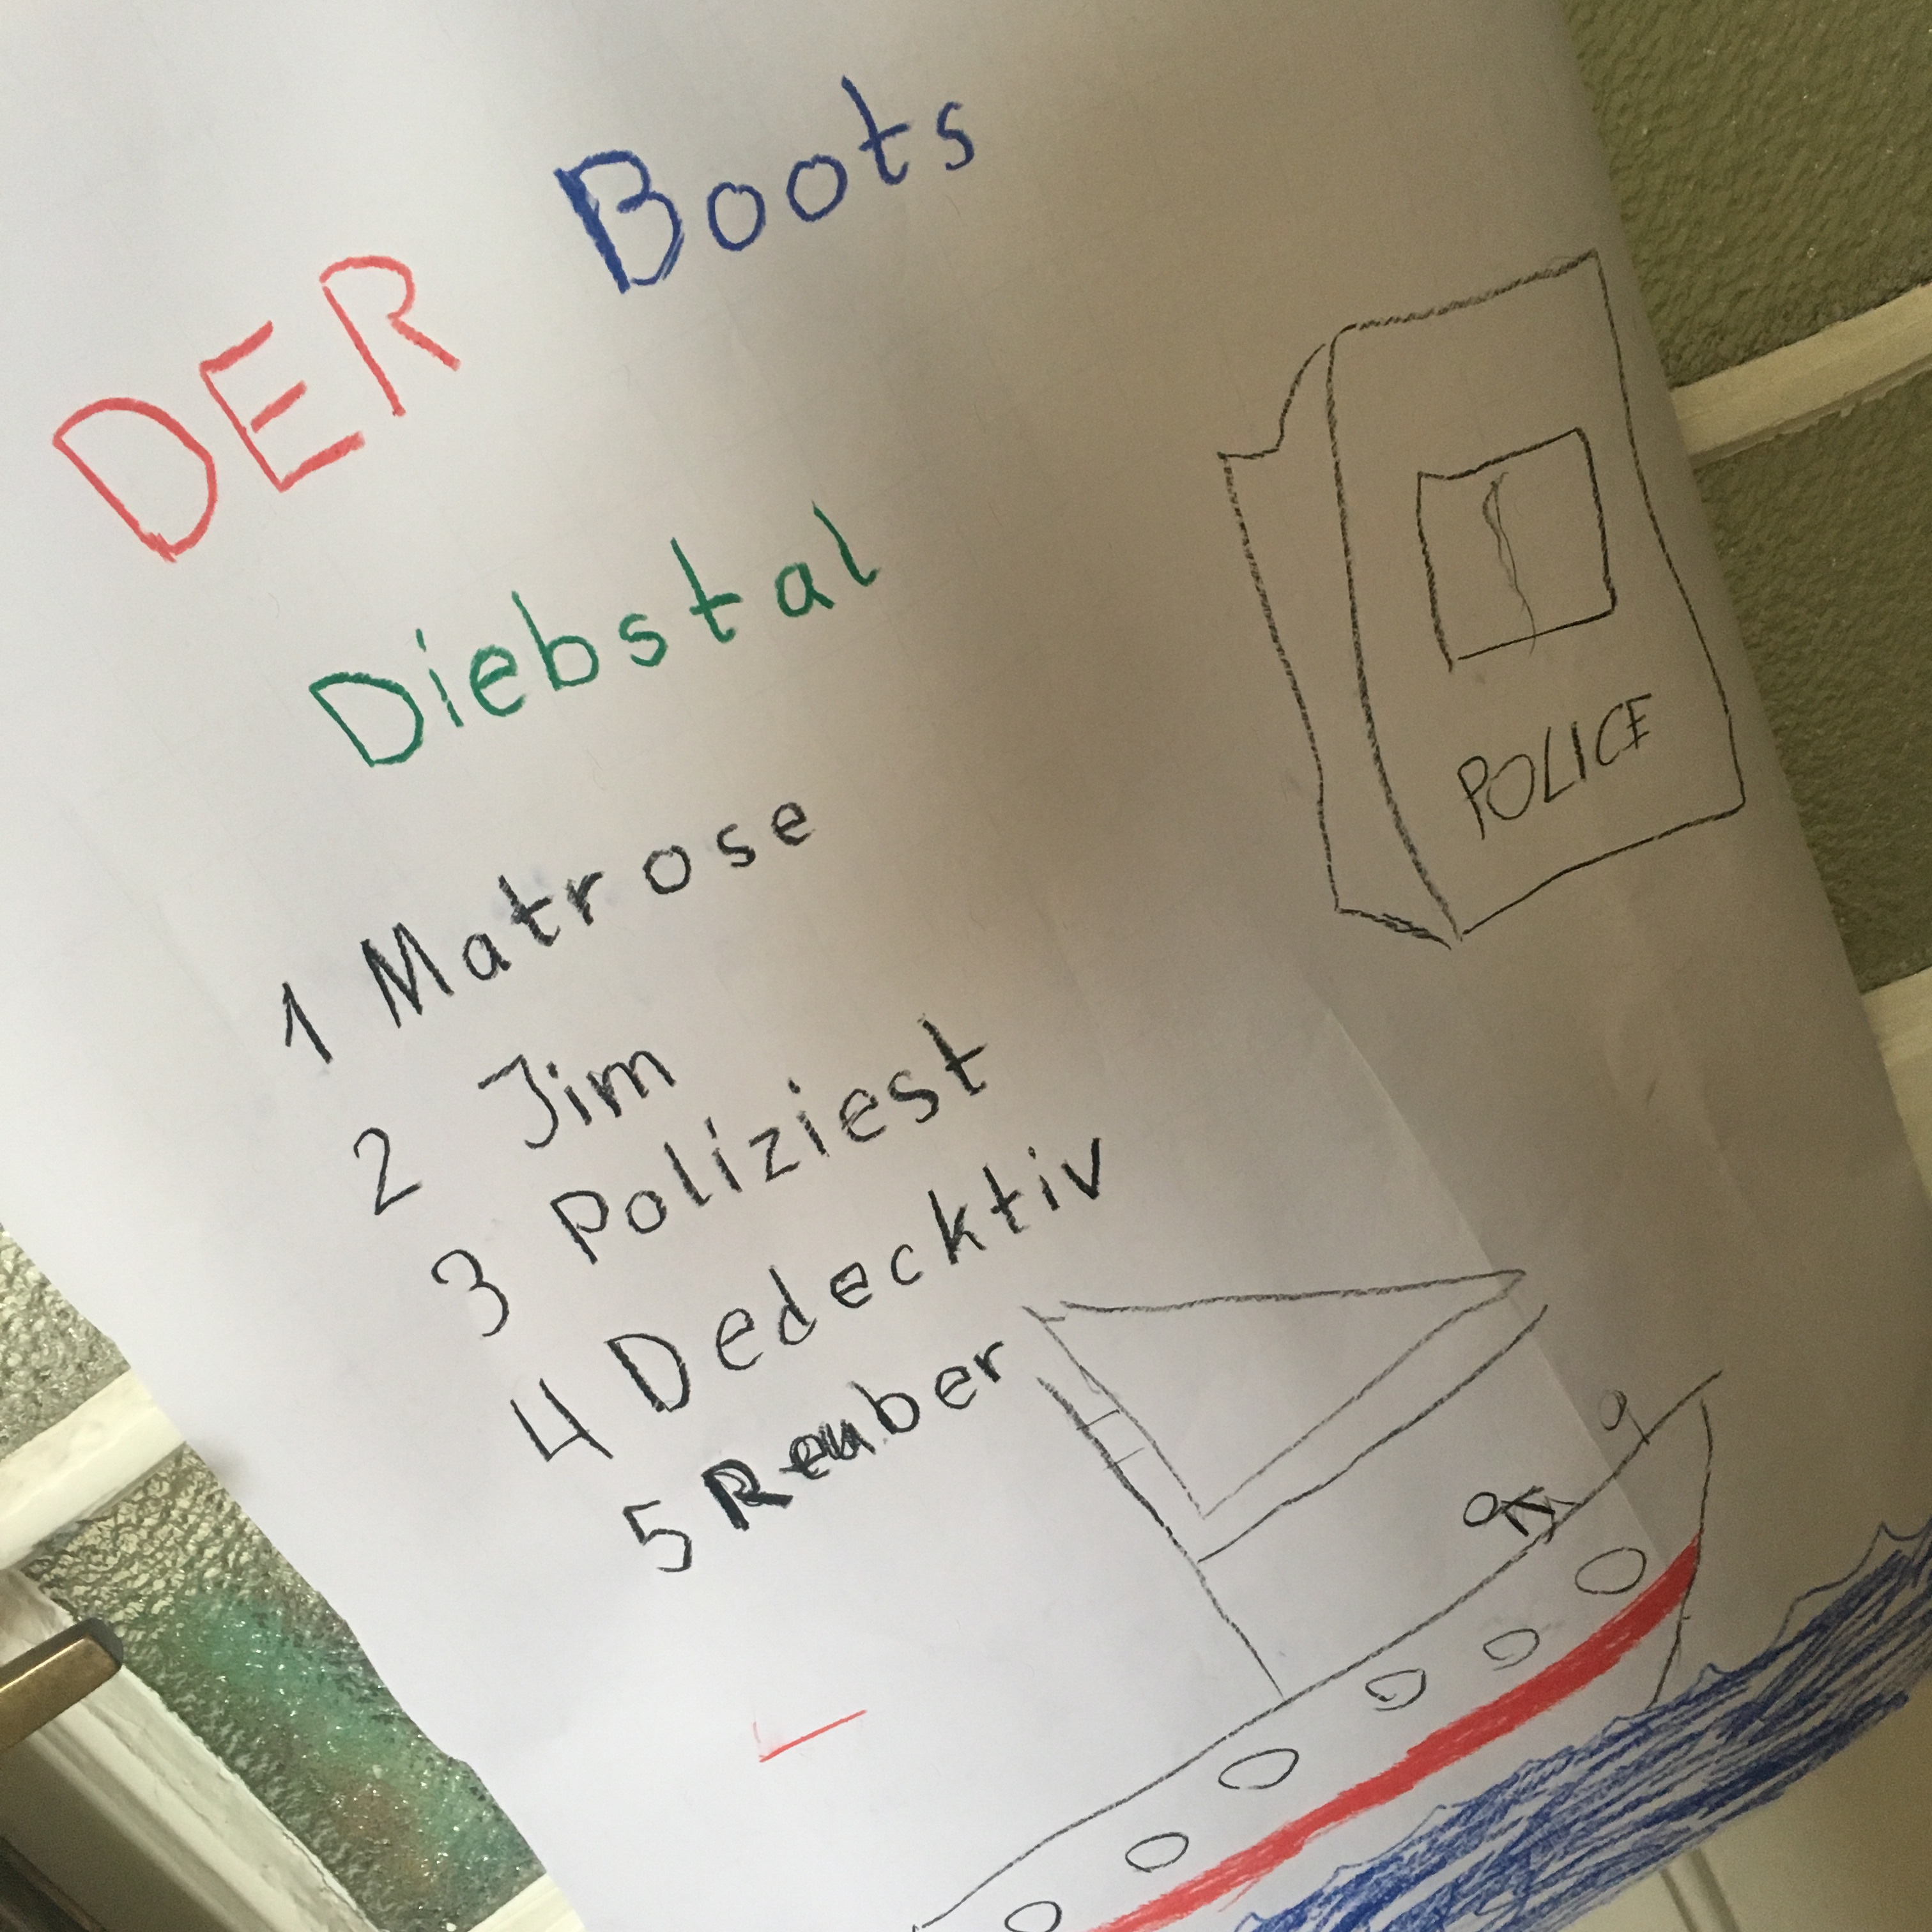 DER Boots
Diebstal
1 Matrose
2 Jim
3 Poliziest
4 Dedecktiv
5 Reuber
POLICE